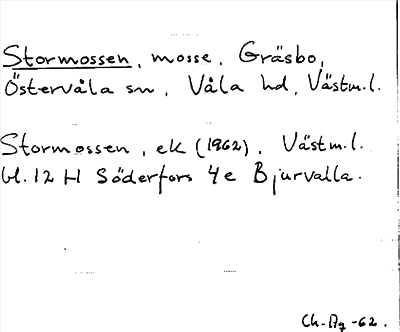 Stormossen, mosse, Gräsbo,
Östervåla sn, Våla hd, Västm.l.
Stormossen, ek (1962), Västm.l.
bl. 12 H Söderfors 4e Bjurvalla.
Ch-Ag -62.